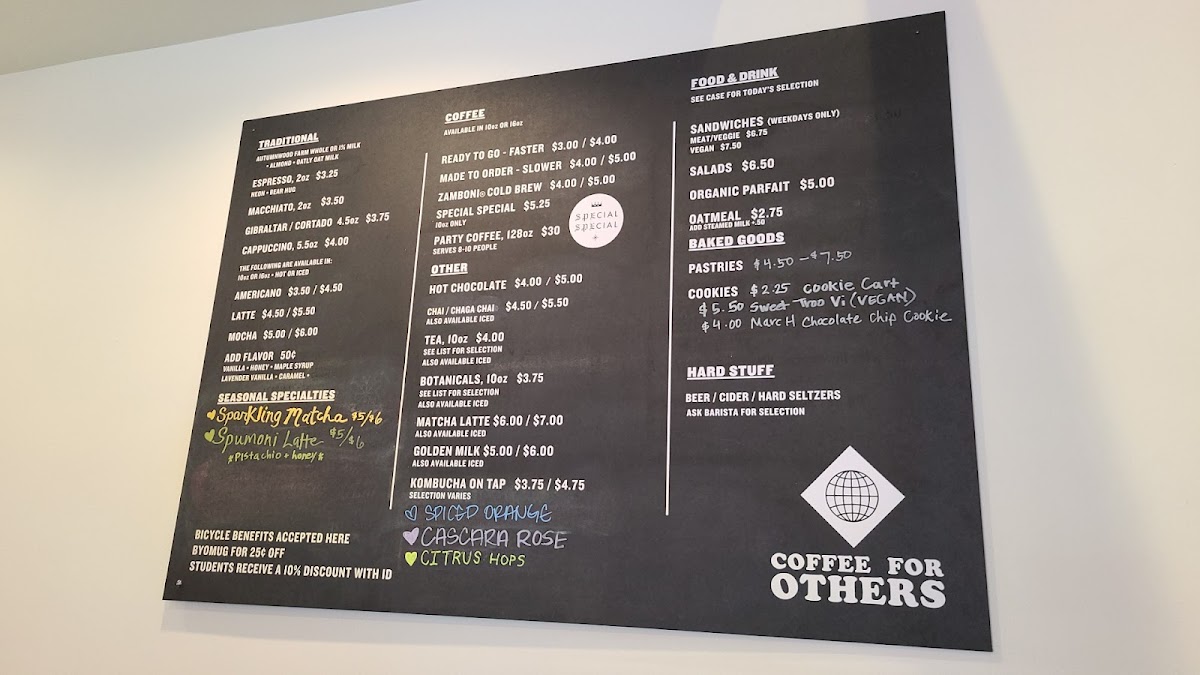 TRADITIONAL
AUTUMNWOOD FARM WHOLE OR 1% MILK
• ALMOND • OATLY OAT MILK
ESPRESSO, 2oz $3.25
NEON • BEAR HUG
MACCHIATO, 2oz $3.50
GIBRALTAR / CORTADO 4.5oz $3.75
CAPPUCCINO, 5.5oz $4.00
THE FOLLOWING ARE AVAILABLE IN:
10oz OR 16oz • HOT OR ICED
AMERICANO $3.50 / $4.50
LATTE $4.50 / $5.50
MOCHA $5.00 / $6.00
ADD FLAVOR 50¢
VANILLA • HONEY • MAPLE SYRUP
LAVENDER VANILLA • CARAMEL •
SEASONAL SPECIALTIES
Sparkling Matcha $5/$6
Spumoni Latte $5/$6
*Pistachio + honey*
BICYCLE BENEFITS ACCEPTED HERE
BYOMUG FOR 25¢ OFF
STUDENTS RECEIVE A 10% DISCOUNT WITH ID
COFFEE
AVAILABLE IN 10oz OR 16oz
READY TO GO - FASTER $3.00 / $4.00
MADE TO ORDER - SLOWER $4.00 / $5.00
ZAMBONI® COLD BREW $4.00 / $5.00
SPECIAL SPECIAL $5.25
10oz ONLY
PARTY COFFEE, 128oz $30
SERVES 8-10 PEOPLE
SPECIAL
SPECIAL
OTHER
HOT CHOCOLATE $4.00 / $5.00
CHAI / CHAGA CHAI $4.50 / $5.50
ALSO AVAILABLE ICED
TEA, 10oz $4.00
SEE LIST FOR SELECTION
ALSO AVAILABLE ICED
BOTANICALS, 10oz $3.75
SEE LIST FOR SELECTION
ALSO AVAILABLE ICED
MATCHA LATTE $6.00 / $7.00
ALSO AVAILABLE ICED
GOLDEN MILK $5.00 / $6.00
ALSO AVAILABLE ICED
KOMBUCHA ON TAP $3.75 / $4.75
SELECTION VARIES
SPICED ORANGE
CASCARA ROSE
CITRUS HOPS
FOOD & DRINK
SEE CASE FOR TODAY'S SELECTION
SANDWICHES (WEEKDAYS ONLY)
MEAT/VEGGIE $6.75
VEGAN $7.50
SALADS $6.50
ORGANIC PARFAIT $5.00
OATMEAL $2.75
ADD STEAMED MILK +.50
BAKED GOODS
PASTRIES $4.50 - $7.50
COOKIES $2.25 Cookie Cart
$5.50 Sweet Troo Vi (VEGAN)
$4.00 Marc H Chocolate Chip Cookie
HARD STUFF
BEER / CIDER / HARD SELTZERS
ASK BARISTA FOR SELECTION
COFFEE FOR
OTHERS